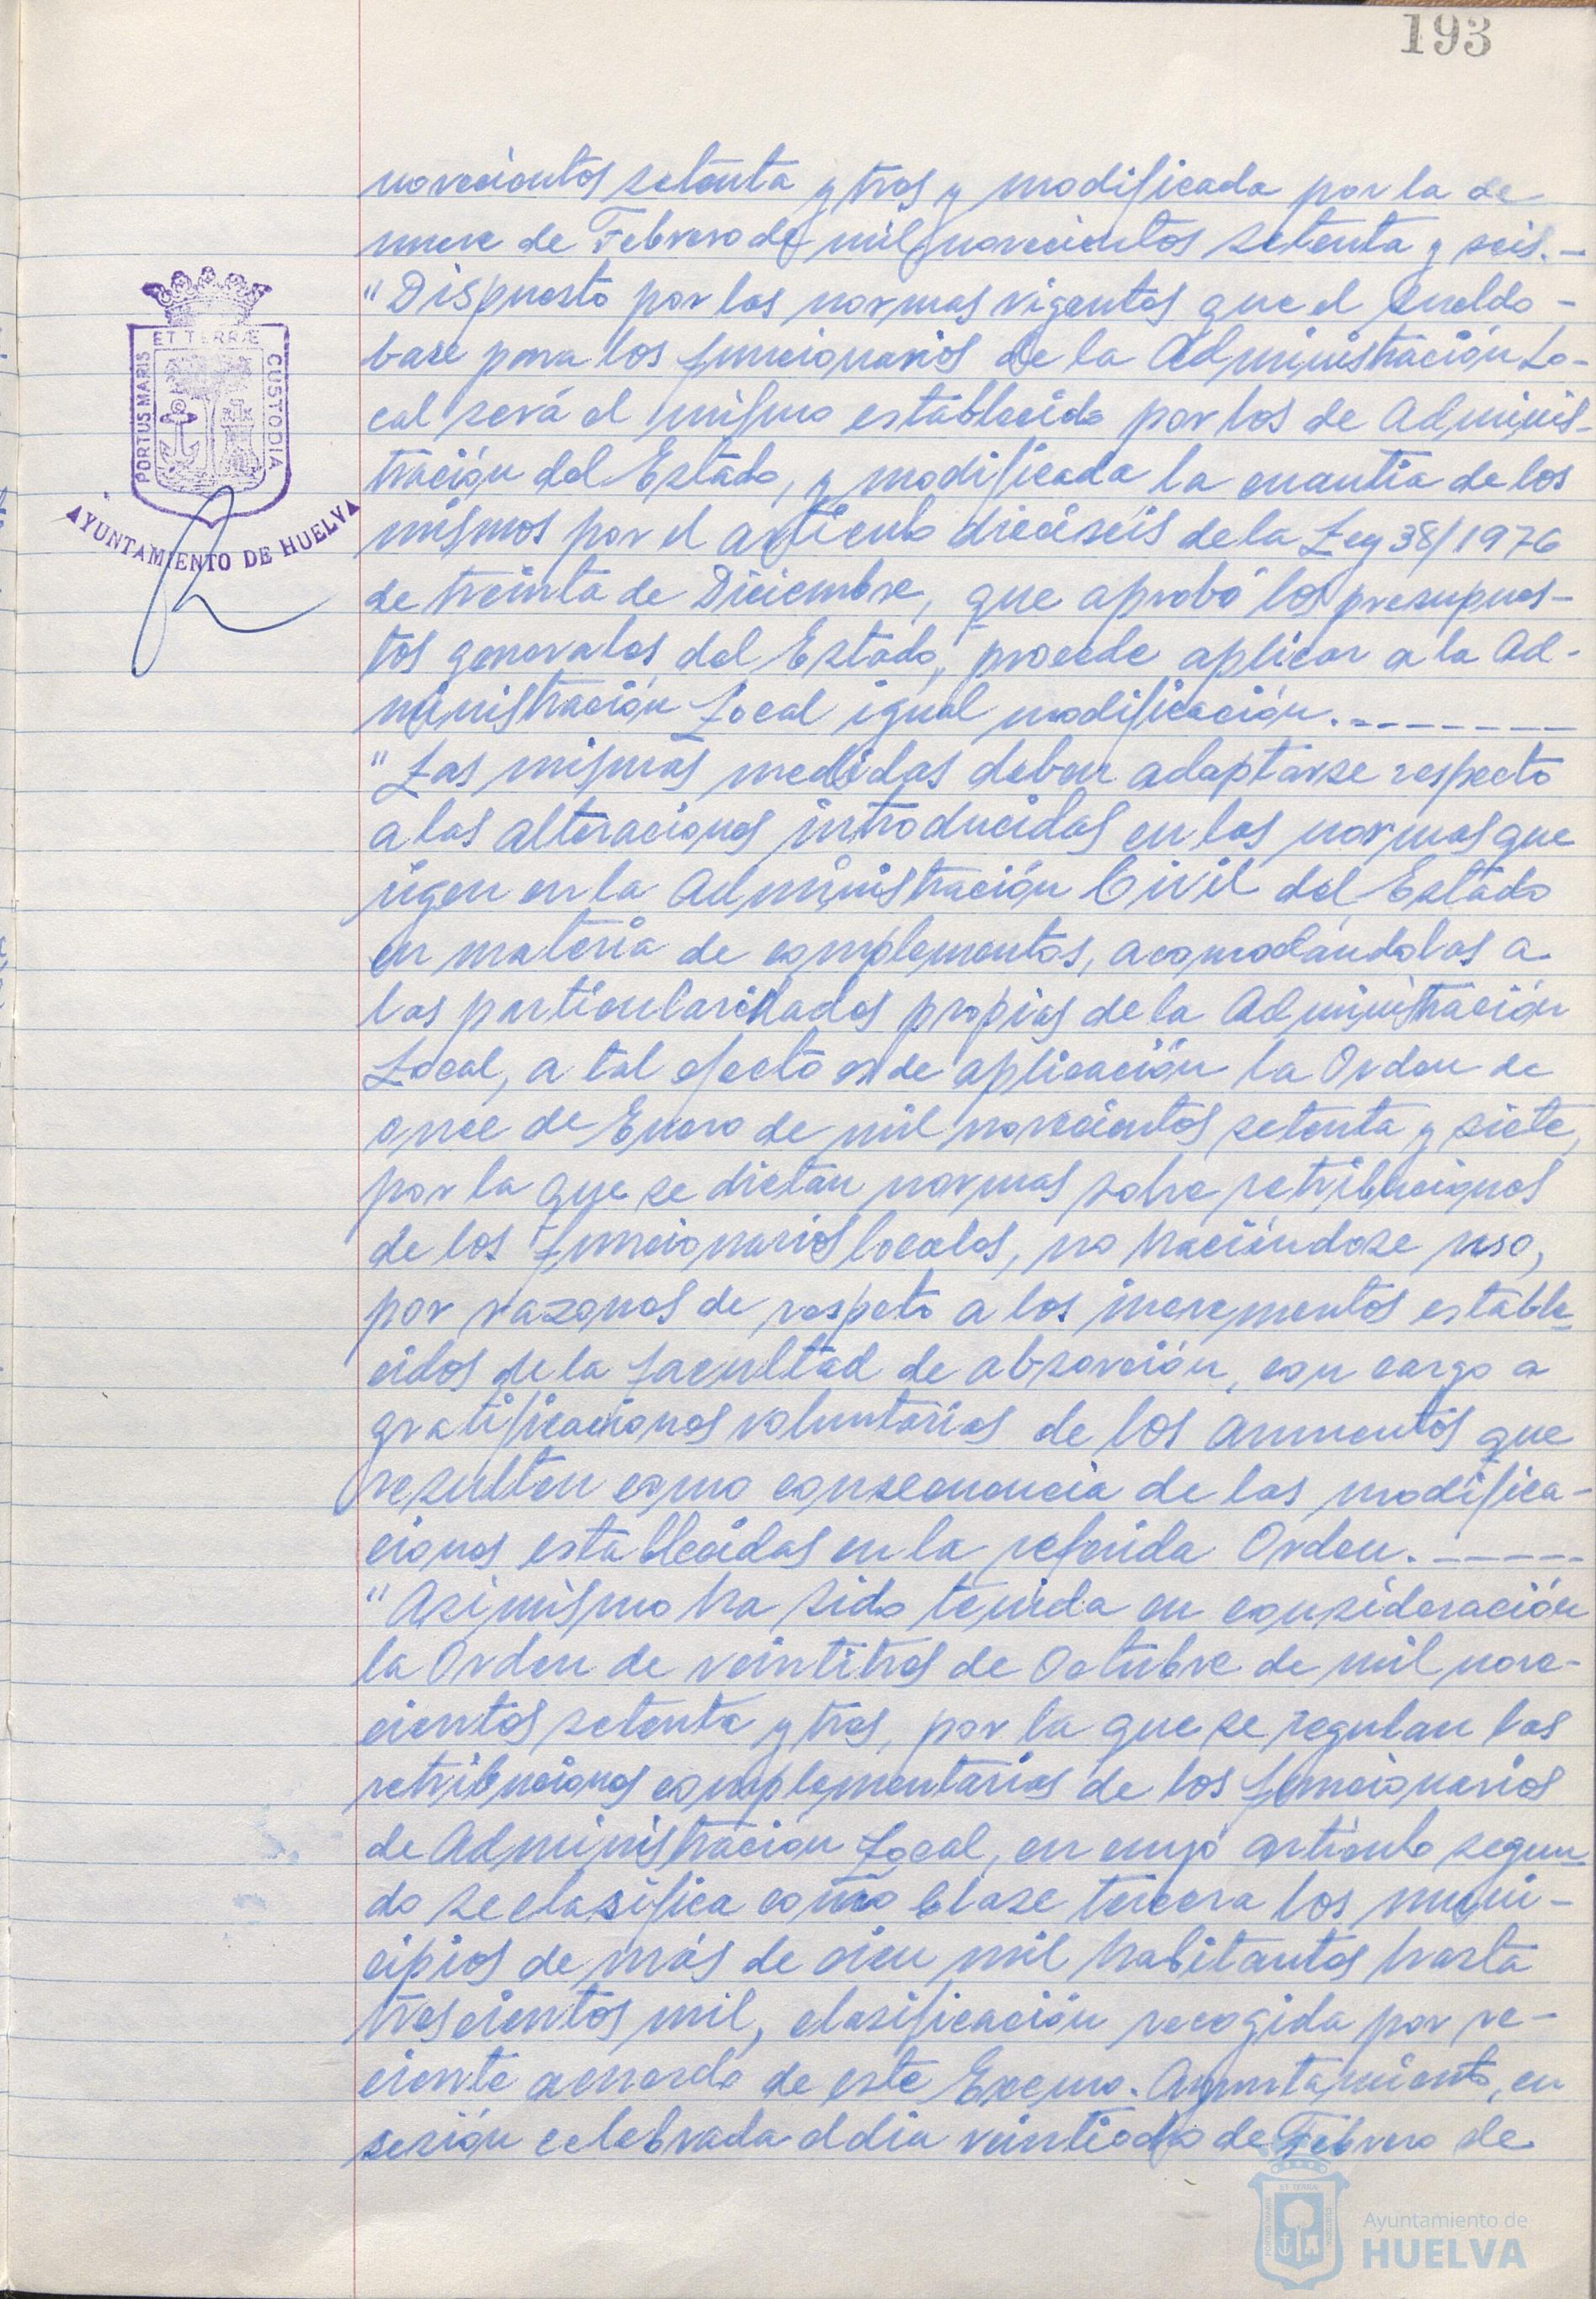 193
novecientos setenta y tres y modificada por la de
nueve de Febrero de mil novecientos setenta y seis.-
"Dispuesto por las normas vigentes que el Sueldo-
base para los funcionarios de la Administración Lo-
cal será el mismo establecido por los de Adminis-
tración del Estado, y modificada la cuantía de los
mismos por el artículo dieciseis de la Ley 38/1976
de treinta de Diciembre, que aprobó los presupues-
tos generales del Estado, procede aplicar a la Ad-
ministración Local igual modificación.--------
"Las mismas medidas deben adaptarse respecto
a las alteraciones introducidas en las normas que
rigen en la Administración Civil del Estado
en materia de complementos, acomodándolas a
las particularidades propias de la Administración
Local, a tal efecto es de aplicación la Orden de
once de Enero de mil novecientos setenta y siete,
por la que se dictan normas sobre retribuciones
de los funcionarios locales, no haciéndose uso,
por razones de respeto a los incrementos estable-
cidos de la facultad de absorción, con cargo a
gratificaciones voluntarias de los aumentos que
resulten como consecuencia de las modifica-
ciones establecidas en la referida Orden.-----
"Asimismo ha sido tenida en consideración
la Orden de veintitres de Octubre de mil nove-
cientos setenta y tres, por la que se regulan las
retribuciones complementarias de los funcionarios
de Administracion Local, en cuyo artículo segun-
do se clasifica como Clase tercera los muni-
cipios de más de cien mil habitantes hasta
trescientos mil, clasificación recogida por re-
ciente acuerdo de este Excmo. Ayuntamiento, en
sesión celebrada el dia veintiocho de Febrero de
PORTUS MARIS
ET TERRÆ
CUSTODIA
AYUNTAMIENTO DE HUELVA
Ayuntamiento de
HUELVA